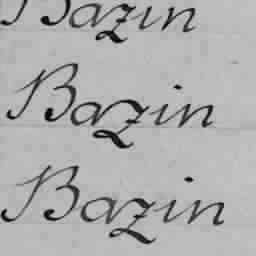 Bazin
Bazin
Bazin